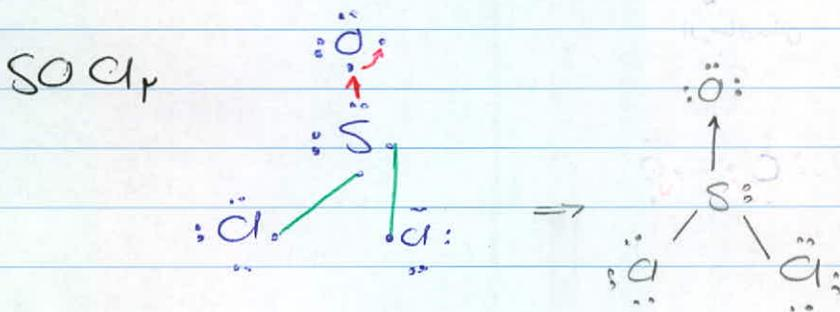 SOCl۲
:O:
:S
:Cl Cl:
⇒
:O:
S:
:Cl Cl: